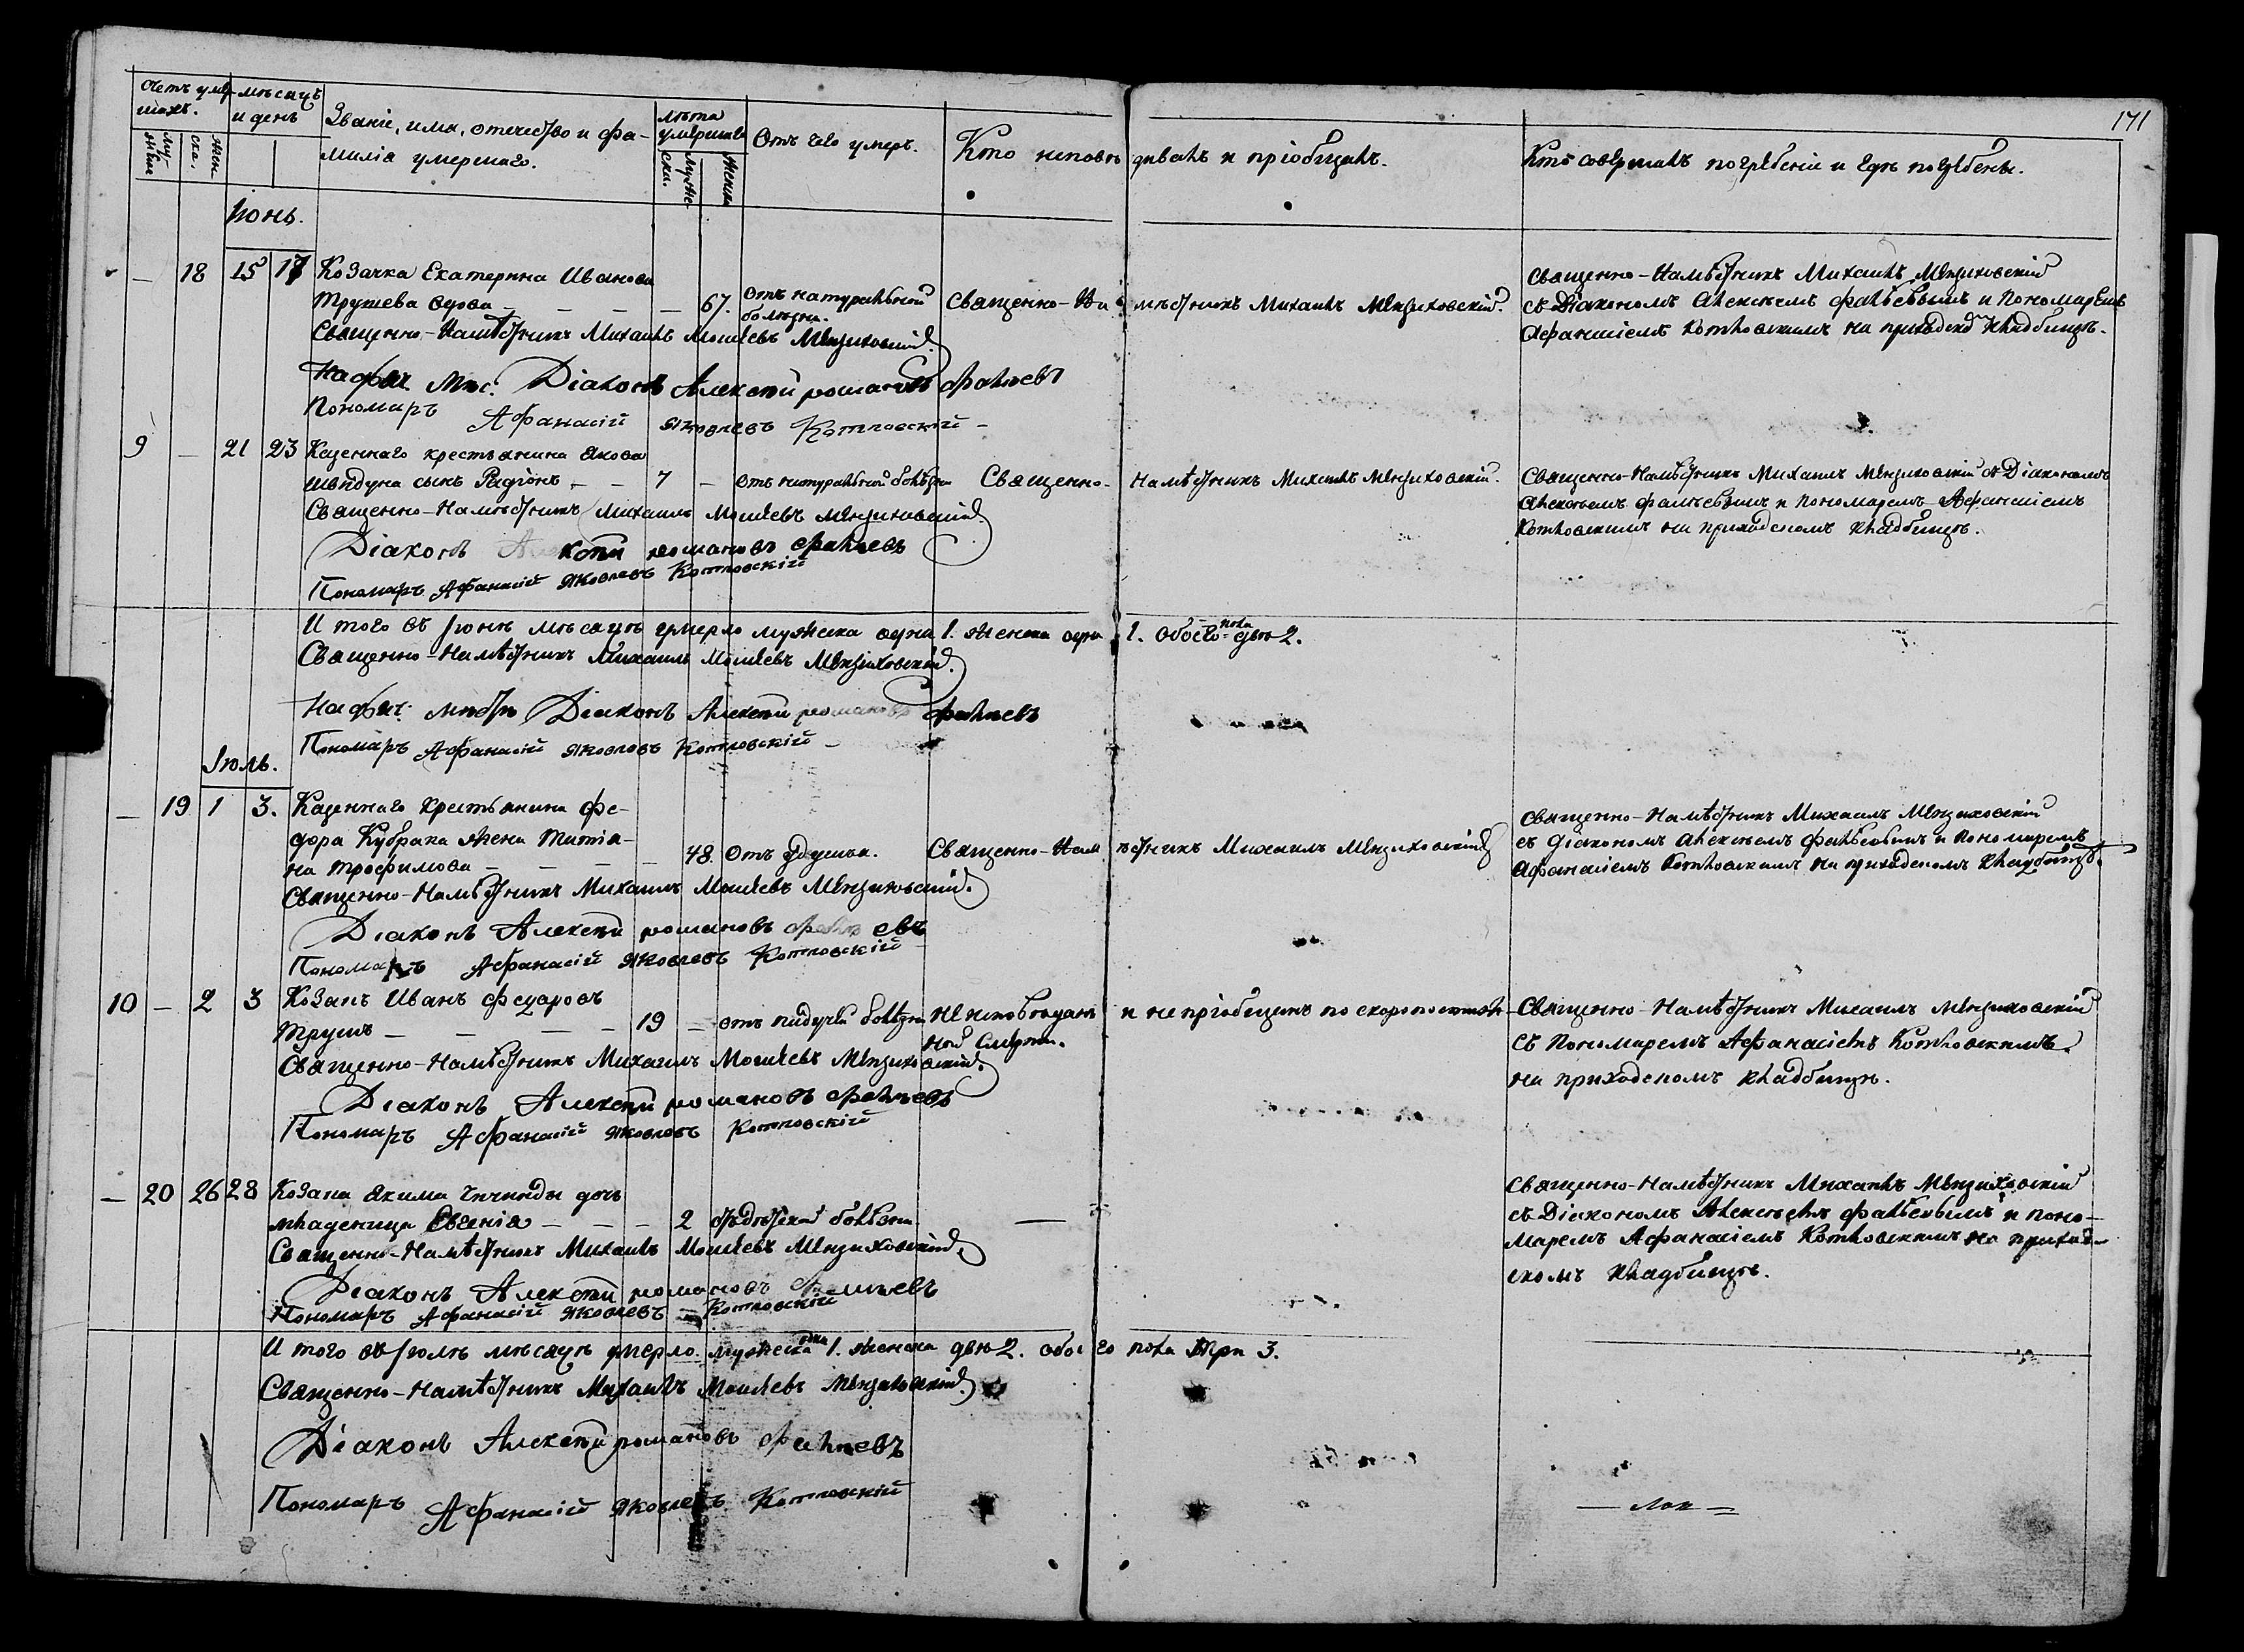 171
Счетъ умер- мѣсяцъ
шихъ. и день
Званіе, имя, отечество и фа-
милія умершаго.
лѣта
умершаго
Отъ чего умеръ.
Кто исповѣ дывалъ и пріобщилъ.
Кто совершалъ погребеніе и гдѣ погребены.
Іюнь.
— 18 15 17 Козачка Екатерина Иванова
Трушева вдова — — — — 67. Отъ натуральной
болѣзни.
Священно-На мѣстникъ Михаилъ Мензиховскій.
Священно-Намѣстникъ Михаилъ Мензиховскій
съ Діакономъ Алексѣемъ Фальѣевымъ и Пономаремъ
Афанасіемъ Котловскимъ на приходско кладбищѣ.
Священно-Намѣстникъ Михаилъ Моисеевъ Мензиховскій.
Діаконъ Алексѣй романовъ фальѣевъ
Пономарь Афанасій Яковлевъ Котловскій —
9 — 21 23 Казеннаго крестьянина Якова
Швѣдуна сынъ Родіонъ — — 7 — отъ натуральной болѣзни Священно- Намѣстникъ Михаилъ Мензиховскій.
Священно-Намѣстникъ Михаилъ Мензиховскій съ Діакономъ
Алексѣемъ фальѣевымъ и Пономаремъ Афанасіемъ
Котловскимъ на приходскомъ кладбищѣ.
Священно-Намѣстникъ Михаилъ Моисеевъ Мензиховскій
Діаконъ Алексѣй романовъ фальѣевъ
Пономарь Афанасій Яковлевъ Котловскій
И того въ Іюнѣ мѣсяцѣ умерло мужска одинъ 1. женска одна 1. обоего пола двѣ 2.
Священно-Намѣстникъ Михаилъ Моисеевъ Мензиховскій.
Діаконъ Алексѣй романовъ фальѣевъ
Пономарь Афанасій Яковлевъ Котловскій —
Іюль.
— 19 1 3. Казеннаго крестьянина фе-
дора Кубрака жена Татія-
на трофимова — — — — 48. Отъ удушья. Священно-Нам ѣстникъ Михаилъ Мензиховскій
Священно-Намѣстникъ Михаилъ Мензиховскій
съ діакономъ Алексѣемъ фальѣевымъ и Пономаремъ
Афанасіемъ Котловскимъ на приходскомъ кладбищѣ.
Священно-Намѣстникъ Михаилъ Моисеевъ Мензиховскій.
Діаконъ Алексѣй романовъ фальѣевъ
Пономарь Афанасій Яковлевъ Котловскій
10 — 2 3 Козакъ Иванъ федоровъ
Трушъ — — — — 19 — отъ падучей болѣзни не исповѣданъ и не пріобщенъ по скоропостиж-
ной смерти.
Священно-Намѣстникъ Михаилъ Мензиховскій
съ Пономаремъ Афанасіемъ Котловскимъ
на приходскомъ кладбищѣ.
Священно-Намѣстникъ Михаилъ Моисеевъ Мензиховскій.
Діаконъ Алексѣй романовъ фальѣевъ
Пономарь Афанасій Яковлевъ Котловскій
— 20 26 28 Козака Якима дочь
младеница Евгенія — — — 2 болѣзни —
Священно-Намѣстникъ Михаилъ Мензиховскій
съ Діакономъ Алексѣемъ фальѣевымъ и поно-
маремъ Афанасіемъ Котловскимъ на приход-
скомъ кладбищѣ.
Священно-Намѣстникъ Михаилъ Моисеевъ Мензиховскій.
Діаконъ Алексѣй романовъ фальѣевъ
Пономарь Афанасій Яковлевъ — Котловскій
И того въ Іюлѣ мѣсяцѣ умерло мужска пола 1. женска двѣ 2. обоего пола три 3.
Священно-Намѣстникъ Михаилъ Моисеевъ Мензиховскій.
Діаконъ Алексѣй романовъ фальѣевъ
Пономарь Афанасій Яковлевъ Котловскій